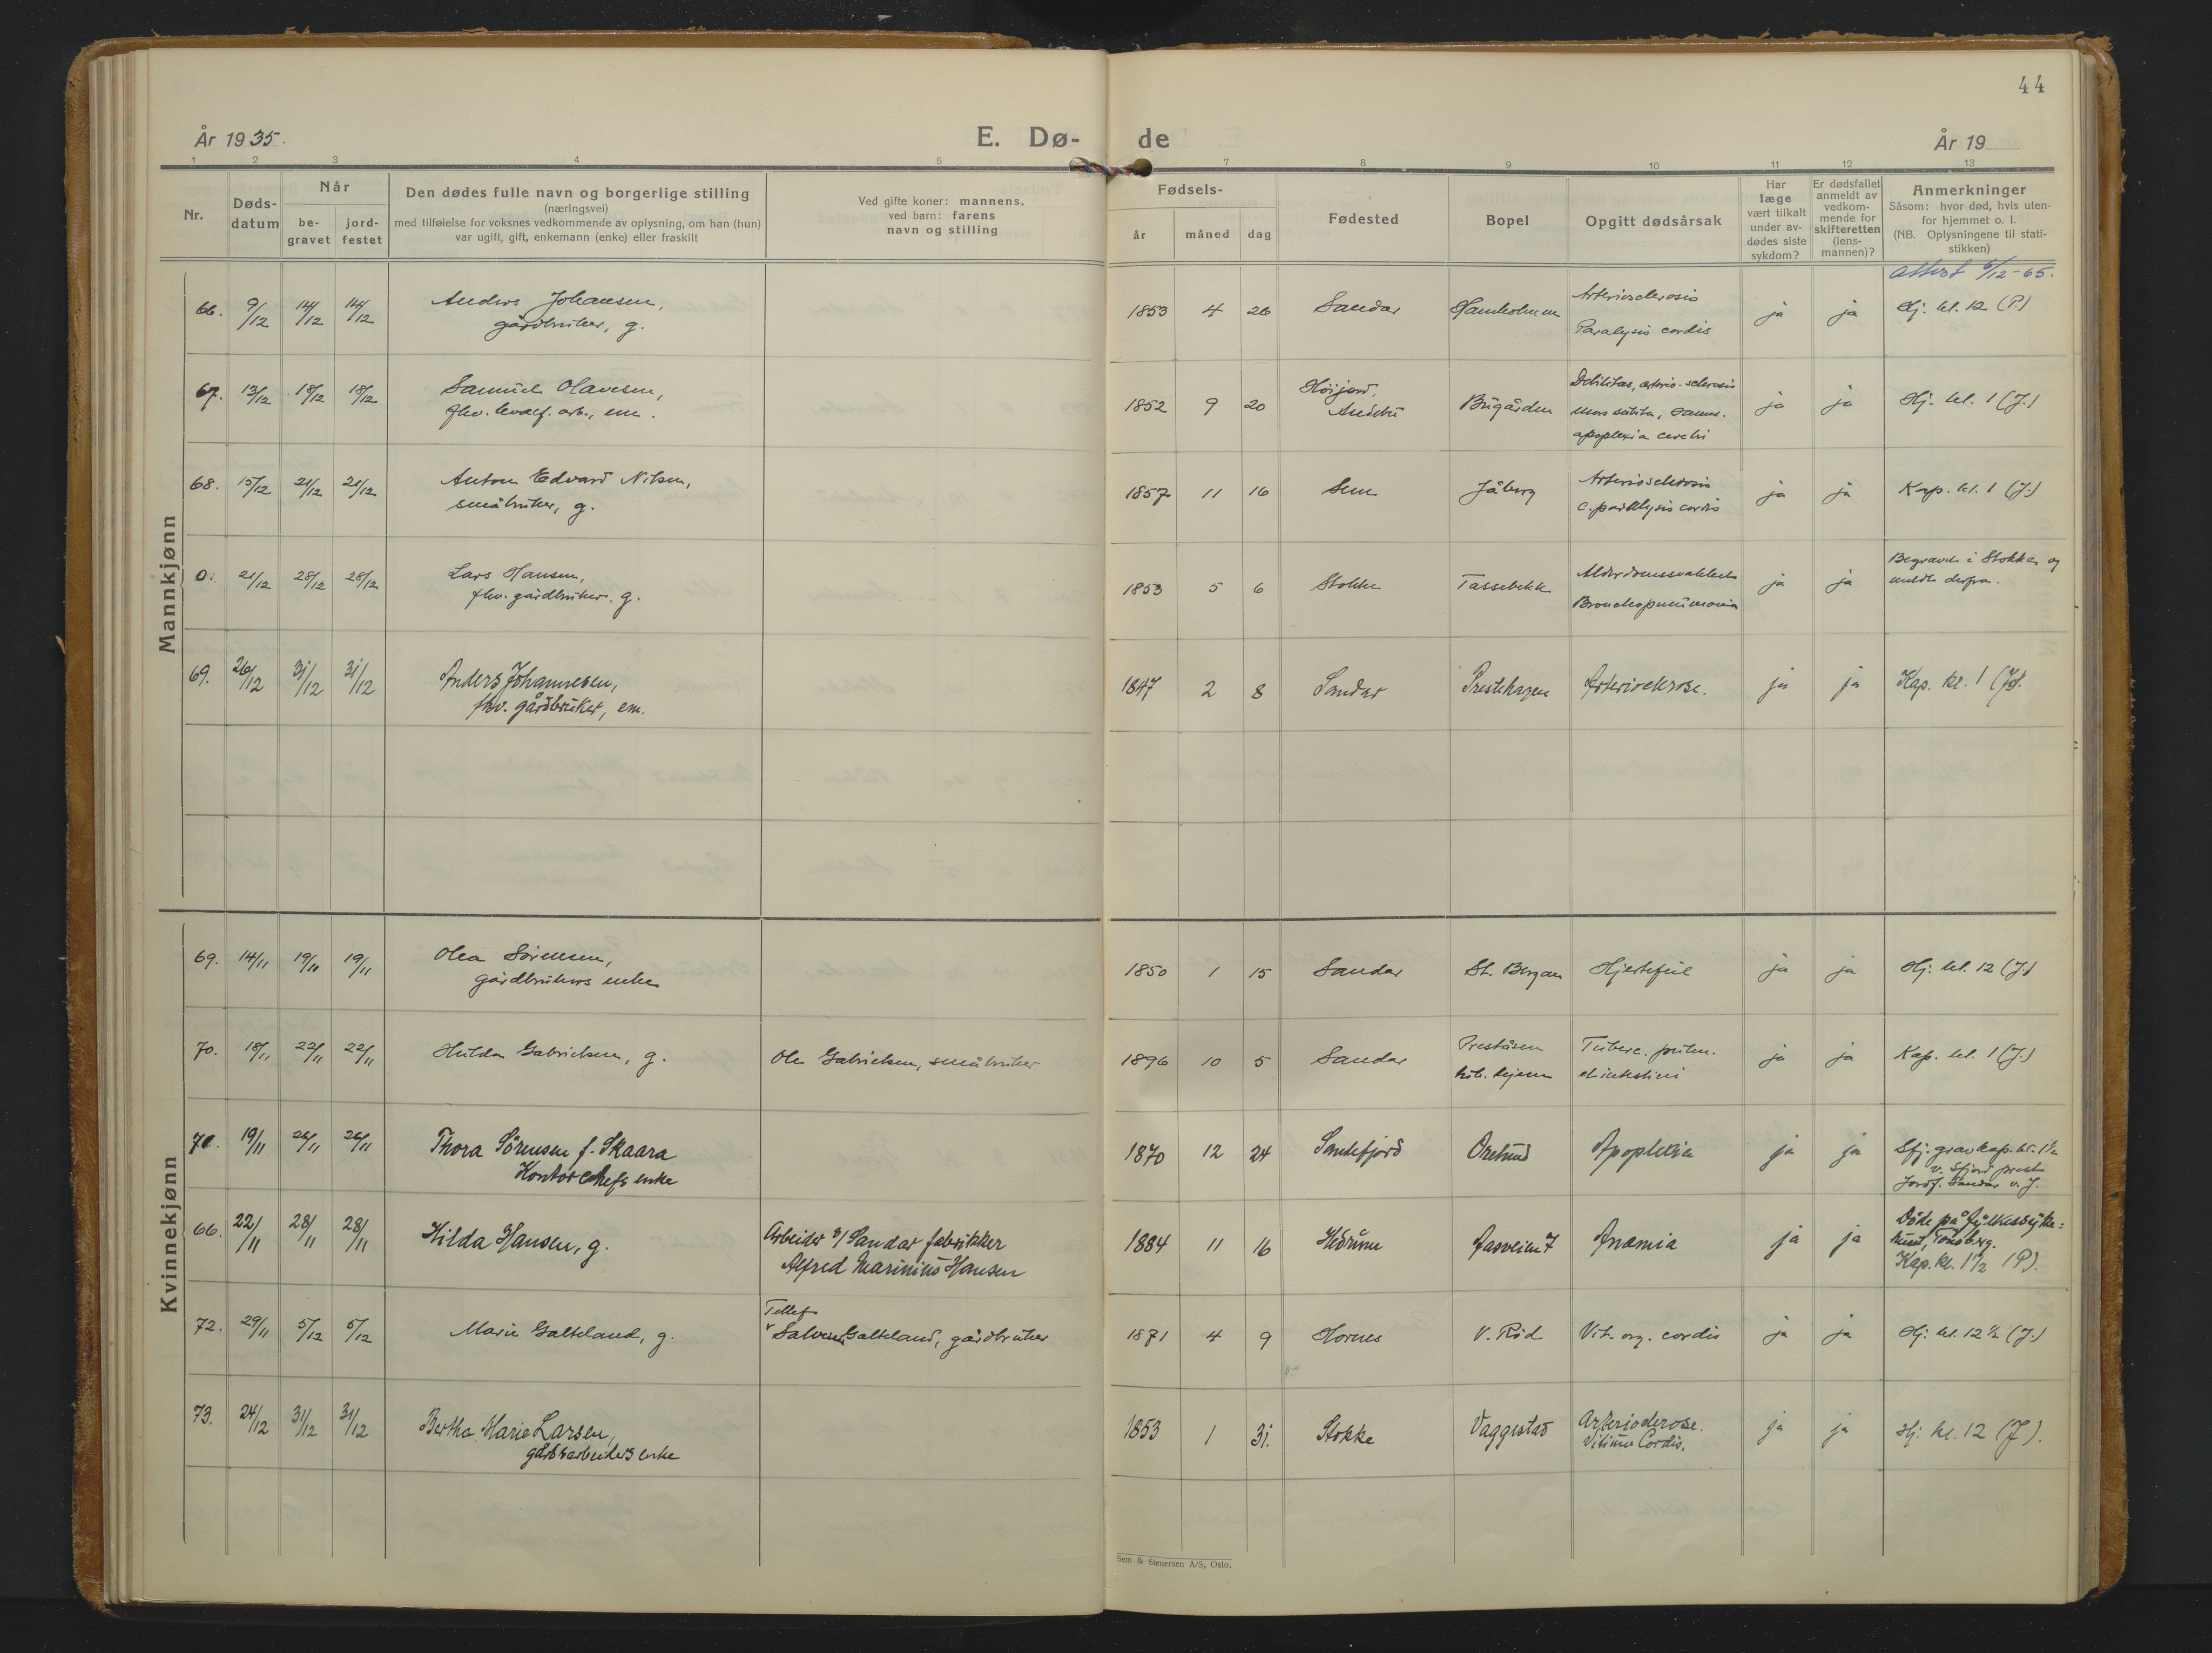 44
År 1935.
E. Dø- de
År 19
1 2 3 4 5 7 8 9 10 11 12 13
Nr.
Døds-
datum
Når
be-
gravet
jord-
festet
Den dødes fulle navn og borgerlige stilling
(næringsvei)
med tilføielse for voksnes vedkommende av oplysning, om han (hun)
var ugift, gift, enkemann (enke) eller fraskilt
Ved gifte koner: mannens,
ved barn: farens
navn og stilling
Fødsels-
år måned dag
Fødested
Bopel
Opgitt dødsårsak
Har
læge
vært tilkalt
under av-
dødes siste
sykdom?
Er dødsfallet
anmeldt av
vedkom-
mende for
skifteretten
(lens-
mannen)?
Anmerkninger
Såsom: hvor død, hvis uten-
for hjemmet o. l.
(NB. Oplysningene til stati-
stikken)
Attest 6/12-65.
Mannkjønn
66. 9/12 14/12 14/12 Anders Johansen,
gårdbruker, g.
1853 4 26 Sandar Hamholmen
Arteriosclerosis
Paralysis cordis
ja ja Hj. kl. 12 (P.)
67. 13/12 18/12 18/12 Samuel Olavesen,
fhv. hvalf. arb., em.
1852 9 20 Höijord,
Andebu
Bugården
Debilitas, arterio-sclerosis
mors subita,
apoplexia cerebri
ja ja Hj. kl. 1 (J.)
68. 15/12 21/12 21/12 Anton Edvard Nilsen,
småbruker, g.
1857 11 16 Sem Jåberg
Arteriosclerosis
c. paralysis cordis
ja ja Kap. kl. 1 (J.)
0. 21/12 28/12 28/12 Lars Hansen,
fhv. gårdbruker, g.
1853 5 6 Stokke Tassebekk
Alderdomssvakhet
Bronchopneumonia
ja ja Begravet i Stokke og
meldt derfra.
69. 26/12 31/12 31/12 Anders Johannesen,
fhv. gårdbruker, em.
1847 2 8 Sandar Prestehagen Arteriosklerose.
ja ja Kap. kl. 1 (J).
Kvinnekjønn
69. 14/11 19/11 19/11 Olea Sörensen,
gårdbrukers enke
1850 1 15 Sandar St. Bergan Hjertefeil
ja ja Hj. kl. 12 (J.)
70. 18/11 22/11 22/11 Hulda Gabrielsen, g.
Ole Gabrielsen, småbruker
1896 10 5 Sandar Preståsen
tub. hjem
Tuberc. pulm.
et intestini
ja ja Kap. kl. 1 (J.)
71. 19/11 26/11 26/11 Thora Sörensen f. Skaara
Kontorchefs enke
1870 12 24 Sandefjord Orelund Apoplexia
ja ja Sfj. gravkap. kl. 1 1/2
v. Sfjord prest
Jordf. Sandar v. J.
66. 22/11 28/11 28/11 Hilda Hansen, g.
Arbeider v/ Sandar fabrikker
Alfred Marinius Hansen
1884 11 16 Hedrum Aasveien 7 Anæmia
ja ja Döde på fylkessyke=
huset, Tönsberg.
Kap. kl. 1 1/2 (P).
72. 29/11 5/12 5/12 Marie Galteland, g.
Tellef
Salvesen Galteland, gårdbruker
1871 4 9 Hornes V. Röd Vit. org. cordis
ja ja Hj. kl. 12 1/2 (J.)
73. 24/12 31/12 31/12 Bertha Marie Larsen,
gårdsarbeiders enke
1853 1 31. Stokke Vaggestad
Arterioderose.
Vitium Cordis.
ja ja Hj. kl. 12 (J).
Sem & Stenersen A/S, Oslo.